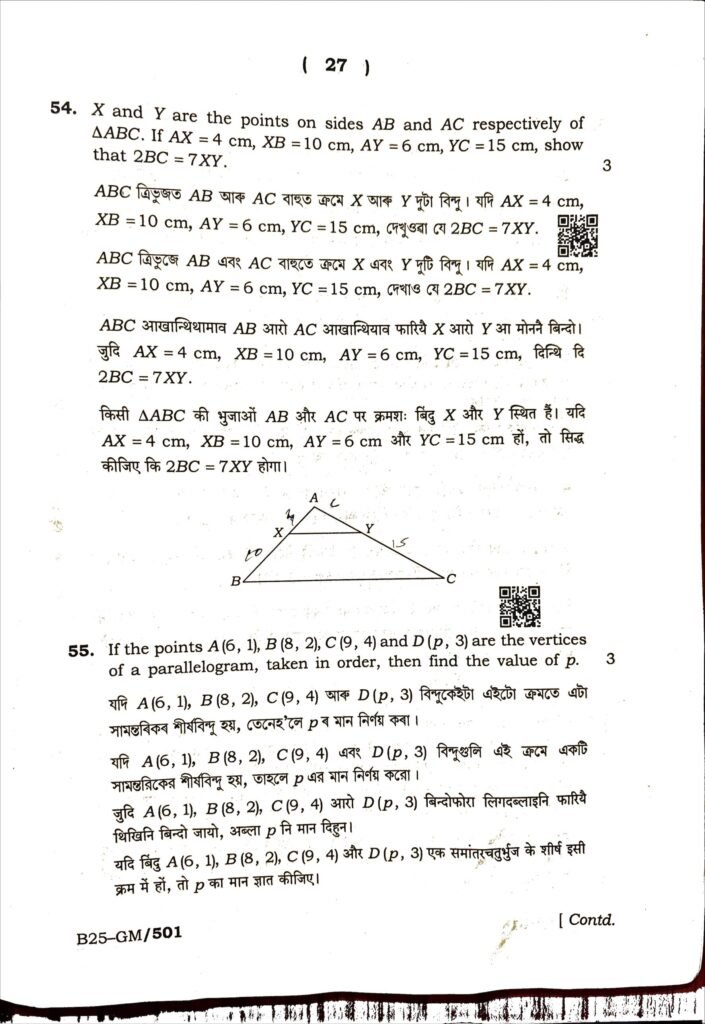 ( 27 )
54. X and Y are the points on sides AB and AC respectively of
ΔABC. If AX = 4 cm, XB = 10 cm, AY = 6 cm, YC = 15 cm, show
that 2BC = 7XY.
3
ABC ত্ৰিভুজত AB আৰু AC বাহুত ক্ৰমে X আৰু Y দুটা বিন্দু। যদি AX = 4 cm,
XB = 10 cm, AY = 6 cm, YC = 15 cm, দেখুওৱা যে 2BC = 7XY.
ABC ত্রিভুজে AB এবং AC বাহুতে ক্রমে X এবং Y দুটি বিন্দু। যদি AX = 4 cm,
XB = 10 cm, AY = 6 cm, YC = 15 cm, দেখাও যে 2BC = 7XY.
ABC आखान्थिथामाव AB आरो AC आखान्थियाव फारियै X आरो Y आ मोननै बिन्दो।
जुदि AX = 4 cm, XB = 10 cm, AY = 6 cm, YC = 15 cm, दिन्थि दि
2BC = 7XY.
किसी ΔABC की भुजाओं AB और AC पर क्रमशः बिंदु X और Y स्थित हैं। यदि
AX = 4 cm, XB = 10 cm, AY = 6 cm और YC = 15 cm हों, तो सिद्ध
कीजिए कि 2BC = 7XY होगा।
A
4
X
Y
10
15
B
C
55. If the points A(6, 1), B(8, 2), C(9, 4) and D(p, 3) are the vertices
of a parallelogram, taken in order, then find the value of p. 3
যদি A(6, 1), B(8, 2), C(9, 4) আৰু D(p, 3) বিন্দুকেইটা এইটো ক্ৰমতে এটা
সামন্তৰিকৰ শীৰ্ষবিন্দু হয়, তেনেহ'লে p ৰ মান নিৰ্ণয় কৰা।
যদি A(6, 1), B(8, 2), C(9, 4) এবং D(p, 3) বিন্দুগুলি এই ক্রমে একটি
সামন্তরিকের শীর্ষবিন্দু হয়, তাহলে p এর মান নির্ণয় করো।
जुदि A(6, 1), B(8, 2), C(9, 4) आरो D(p, 3) बिन्दोफोरा लिगदब्लाइनि फारियै
थिखिनि बिन्दो जायो, अब्ला p नि मान दिहुन।
यदि बिंदु A(6, 1), B(8, 2), C(9, 4) और D(p, 3) एक समांतरचतुर्भुज के शीर्ष इसी
क्रम में हों, तो p का मान ज्ञात कीजिए।
B25–GM/501
[ Contd.